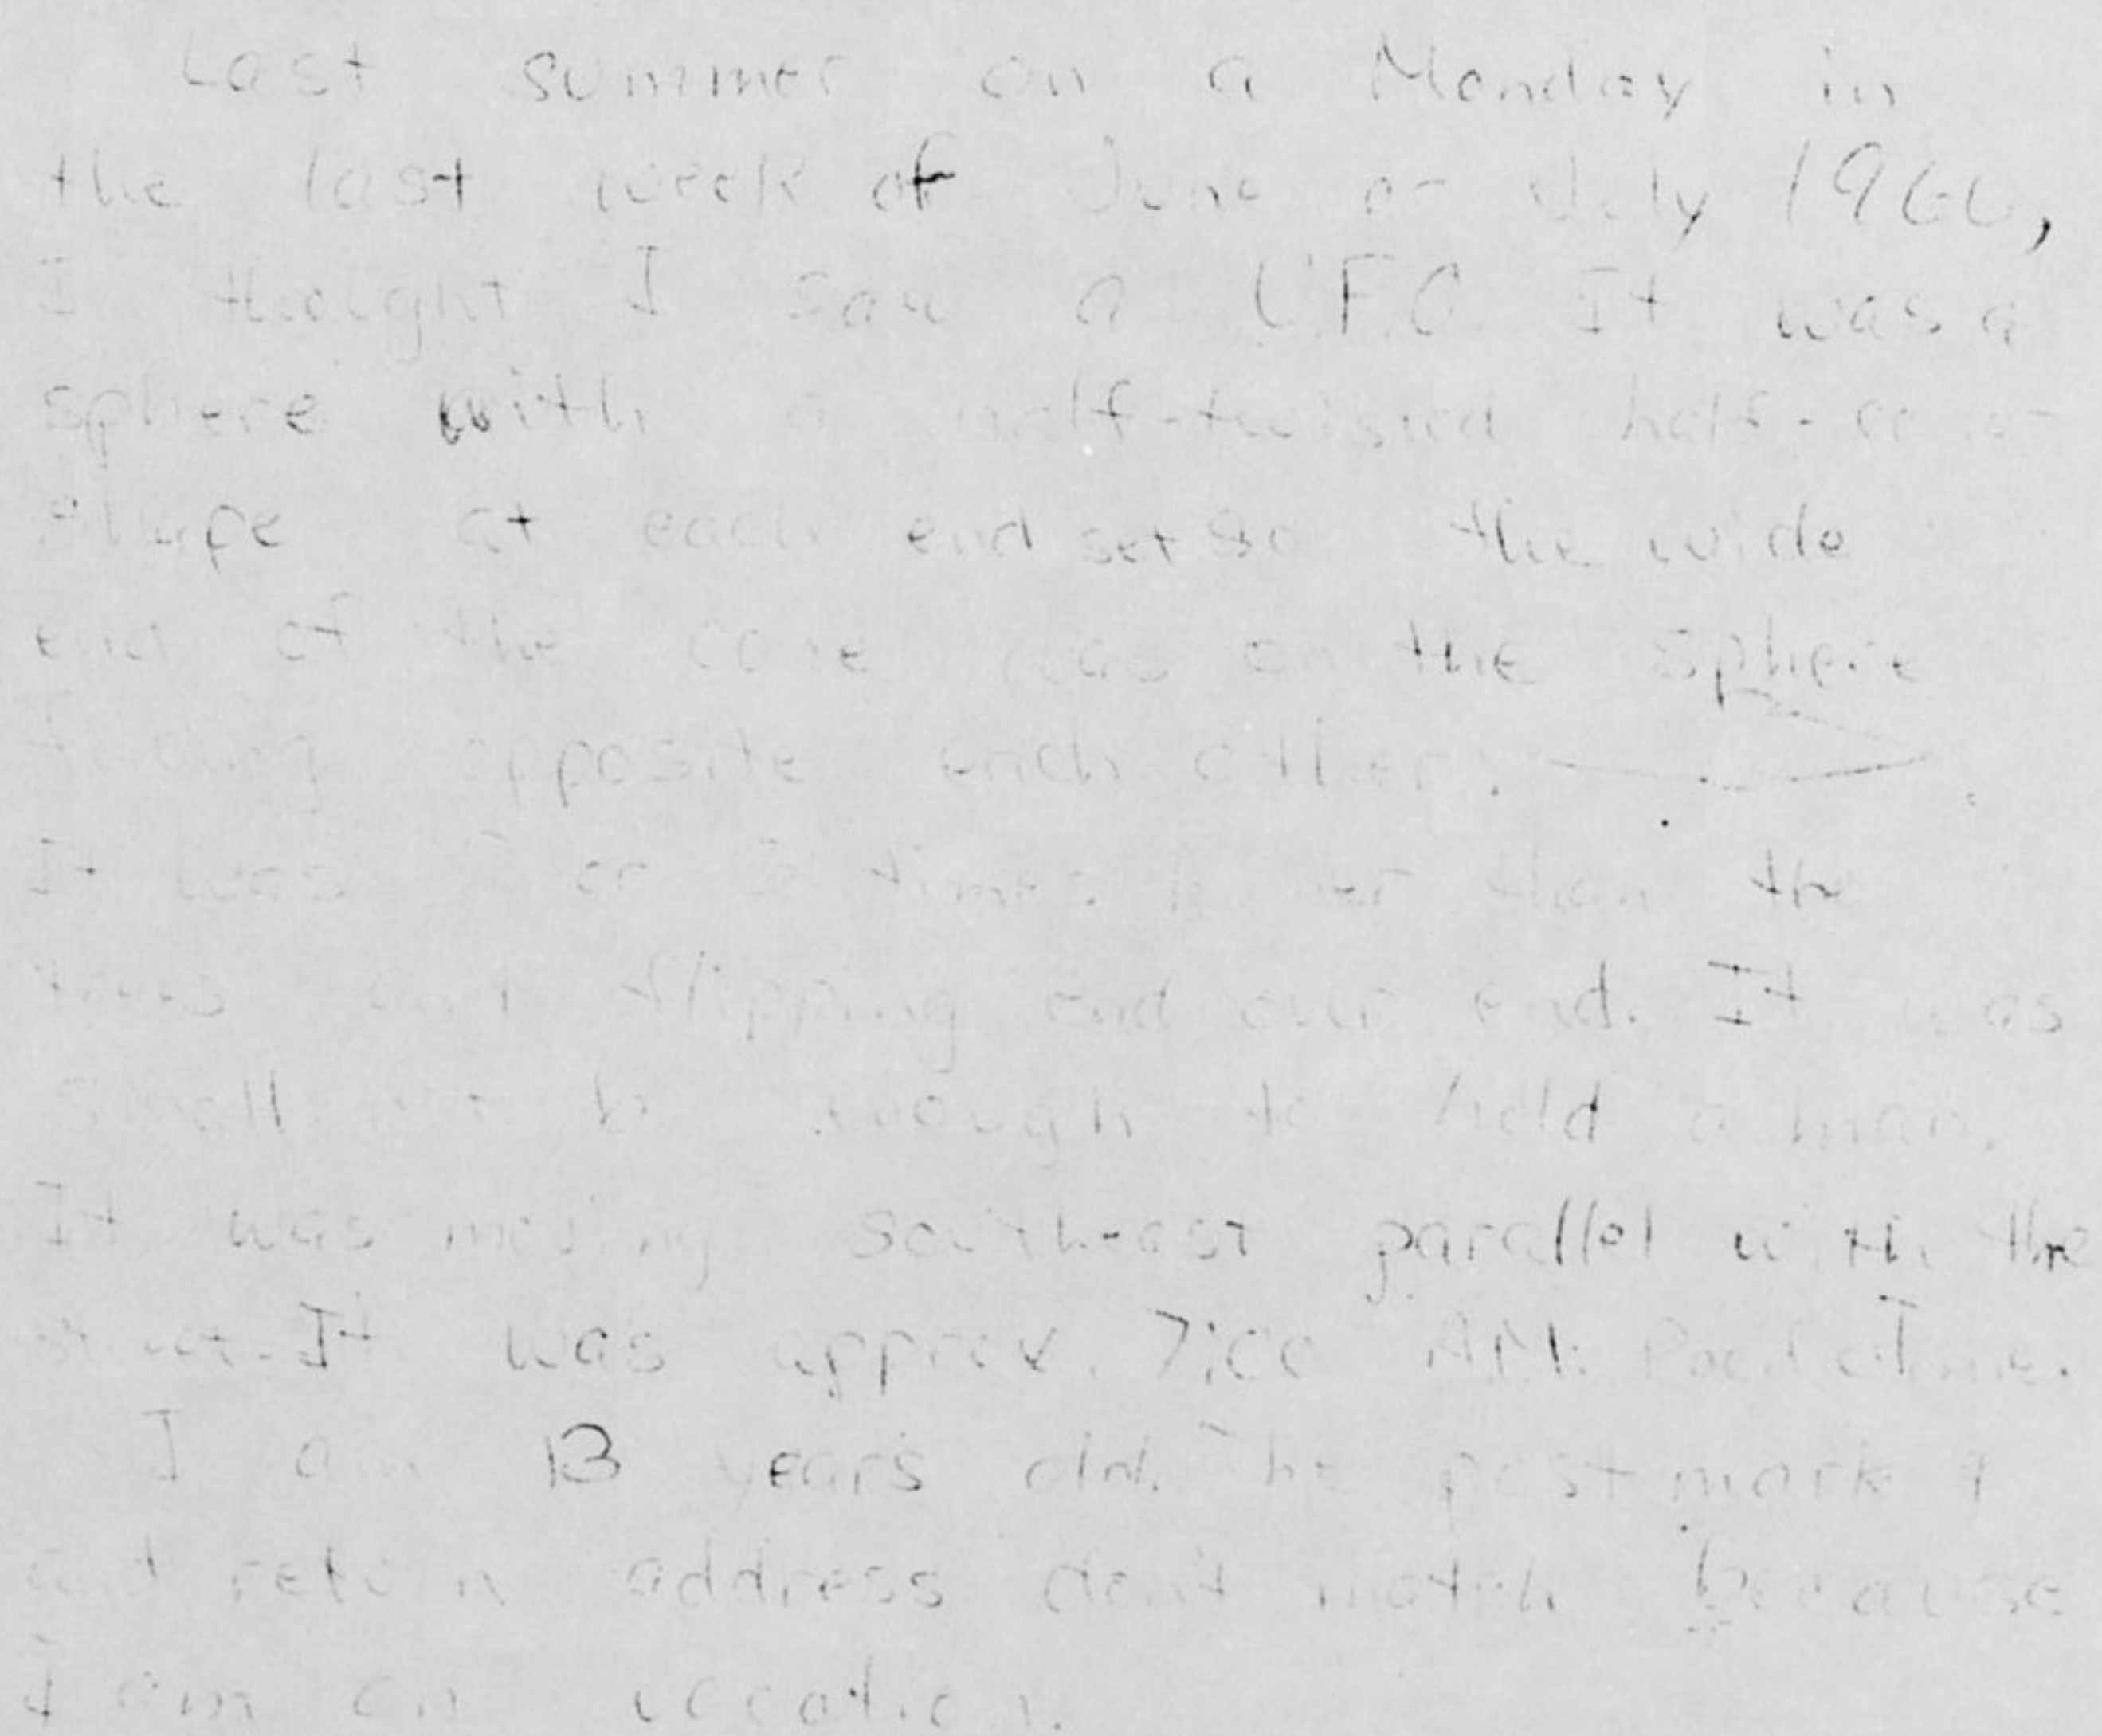 Last summer on a Monday in
the last week of June or July 1966,
I thought I saw a U.F.O. It was a
sphere with a half-twisted half-cone
shape at each end set so the wide
end of the cone was on the sphere
facing opposite each other.
It was or 3 times than the
trees and flipping end over end. It was
small but enough to hold a man.
It was moving southeast parallel with the
street. It was approx. 7:00 A.M. Pacific Time.
I am 13 years old. The postmark
and return address don't match because
I am on vacation.